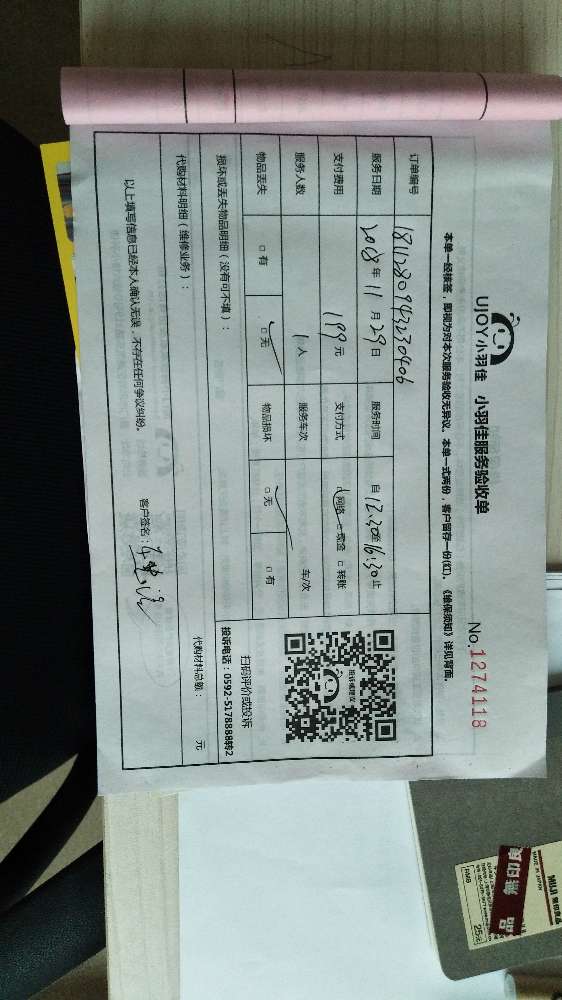 UJOY小羽佳 小羽佳服务验收单
No.1274118
本单一经核签，即视为对本次服务验收无异议。本单一式两份，客户留存一份(红)。《维保须知》详见背面。
订单编号 181128094323040b
服务日期 2018年 11月 29日 服务时间 自12:30至16:30止
支付费用 199元 支付方式 网络 □现金 □转账
服务人数 1人 服务车次 车/次
物品丢失 □有 □无 物品损坏 □无 □有
投诉或建议
扫码评价或投诉
投诉电话：0592-5178888转2
损坏或丢失物品明细（没有可不填）：
代购材料明细（维修业务）：
代购材料总额： 元
以上填写信息已经本人确认无误，不存在任何争议纠纷。
客户签名：
MUJI 無印良品
MADE IN JAPAN
RMB
25元